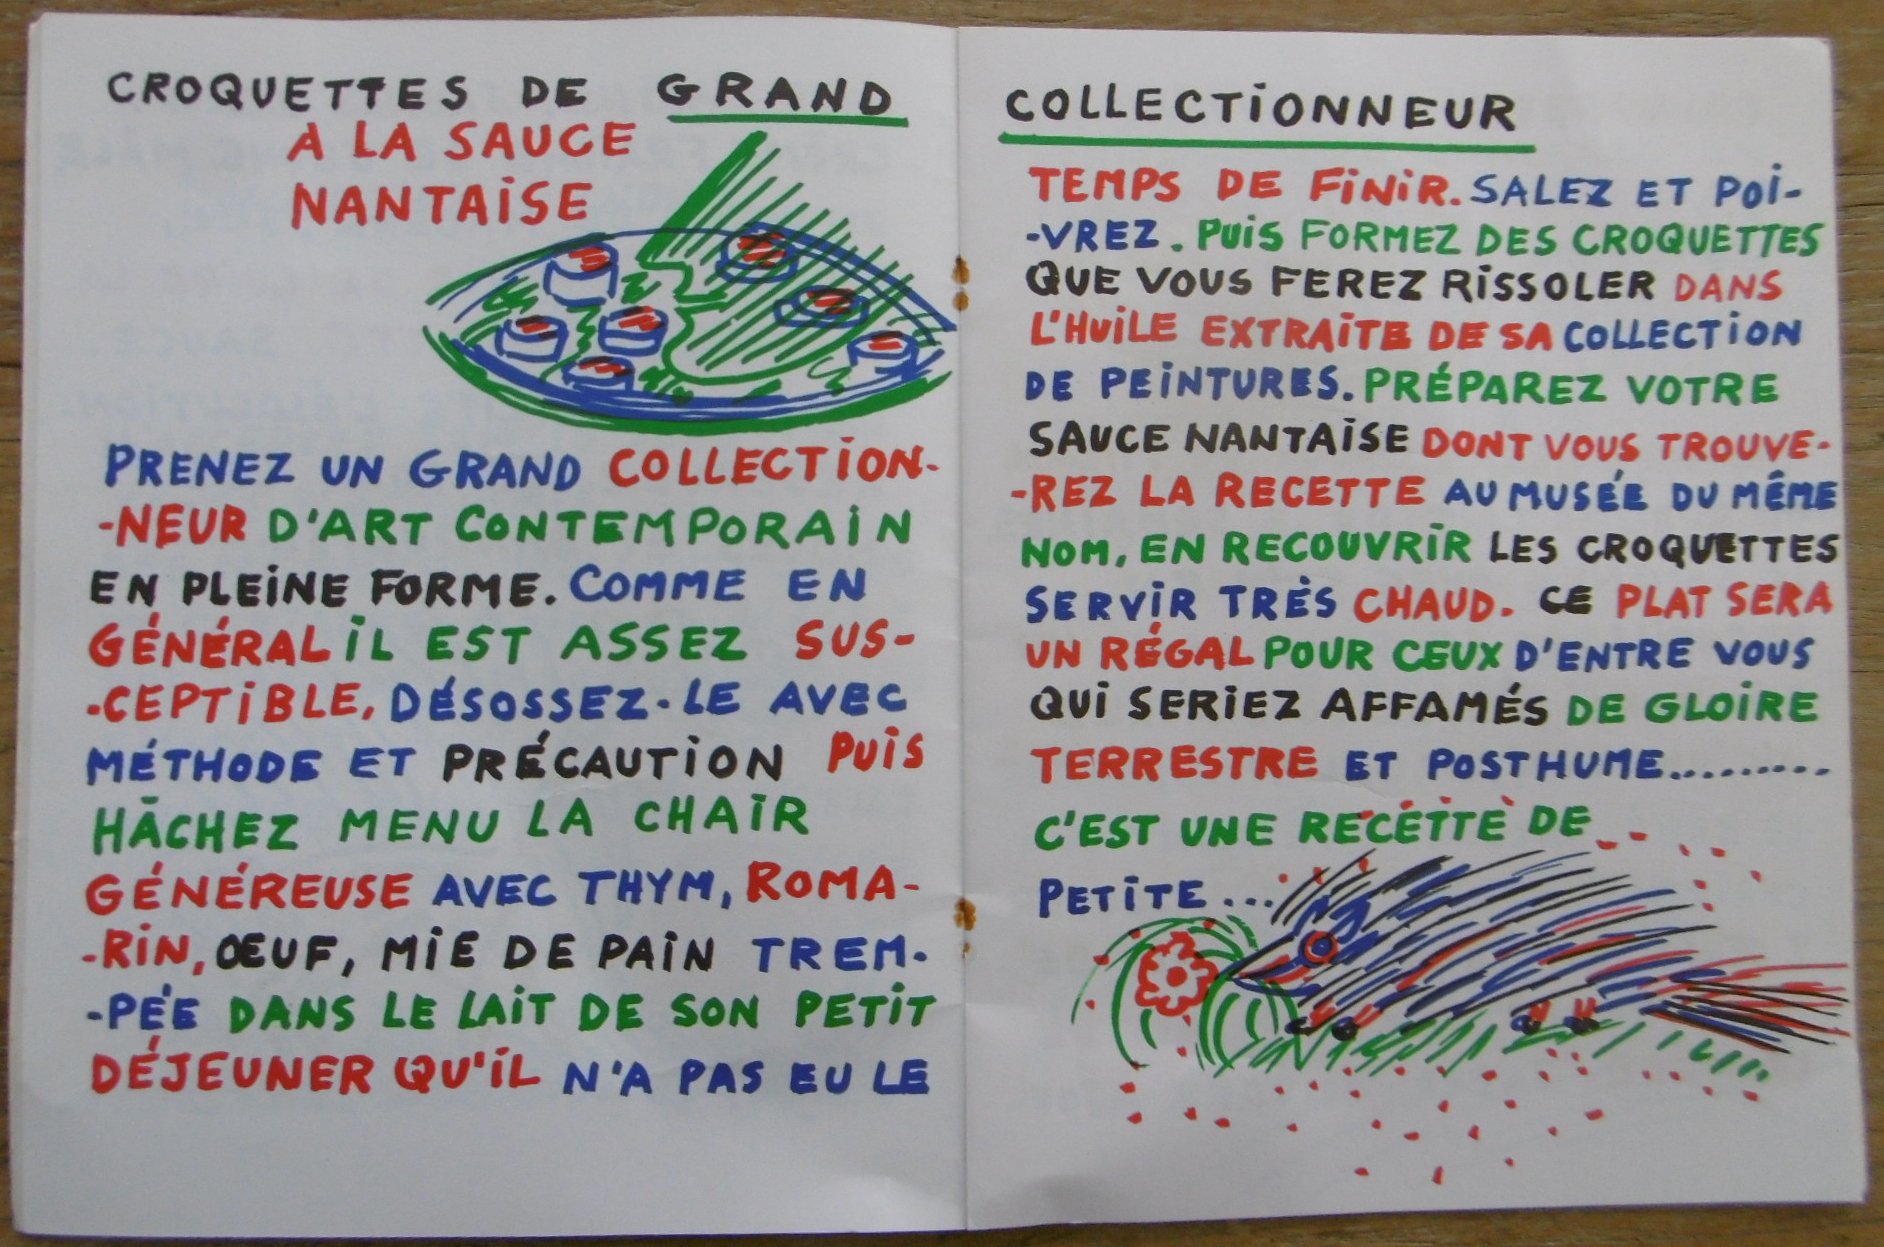 CROQUETTES DE GRAND
A LA SAUCE
NANTAISE
PRENEZ UN GRAND COLLECTION-
-NEUR D'ART CONTEMPORAIN
EN PLEINE FORME. COMME EN
GÉNÉRAL IL EST ASSEZ SUS-
-CEPTIBLE, DÉSOSSEZ-LE AVEC
MÉTHODE ET PRÉCAUTION PUIS
HÂCHEZ MENU LA CHAIR
GÉNÉREUSE AVEC THYM, ROMA-
-RIN, ŒUF, MIE DE PAIN TREM-
-PÉE DANS LE LAIT DE SON PETIT
DÉJEUNER QU'IL N'A PAS EU LE
COLLECTIONNEUR
TEMPS DE FINIR. SALEZ ET POI-
-VREZ. PUIS FORMEZ DES CROQUETTES
QUE VOUS FEREZ RISSOLER DANS
L'HUILE EXTRAITE DE SA COLLECTION
DE PEINTURES. PRÉPAREZ VOTRE
SAUCE NANTAISE DONT VOUS TROUVE-
-REZ LA RECETTE AU MUSÉE DU MÊME
NOM, EN RECOUVRIR LES CROQUETTES
SERVIR TRÈS CHAUD. CE PLAT SERA
UN RÉGAL POUR CEUX D'ENTRE VOUS
QUI SERIEZ AFFAMÉS DE GLOIRE
TERRESTRE ET POSTHUME.........
C'EST UNE RECETTE DE
PETITE...